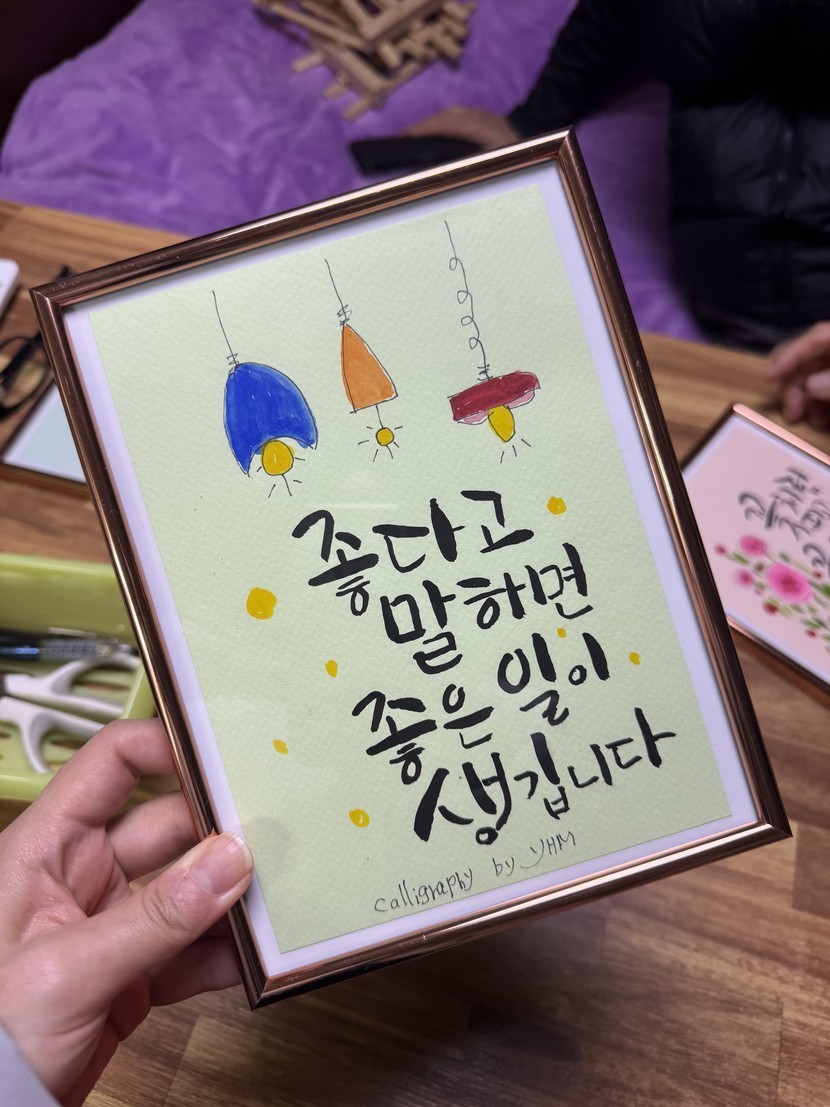 좋다고
말하면
좋은 일이
생깁니다
calligraphy by YHM